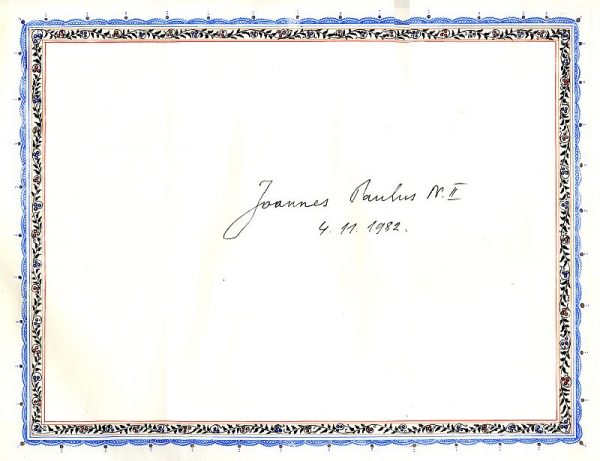 Joannes Paulus PP. II
4. 11. 1982.